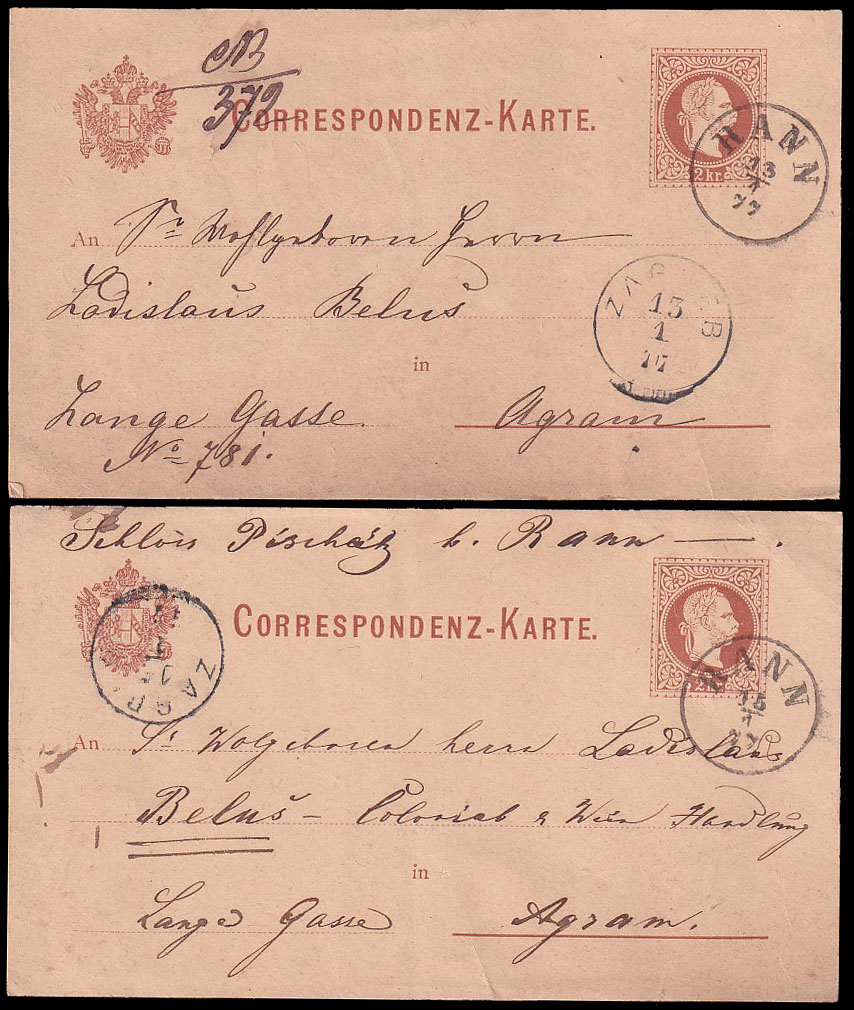 NB
372
CORRESPONDENZ-KARTE.
2 kr.
RANN
13
1
77
An Sr Wohlgeboren Herrn
Ladislaus Belus
ZAGREB
13
1
77
in
Lange Gasse. Agram
No 781.
Schloss Pischätz b. Rann — .
CORRESPONDENZ-KARTE.
2 kr.
RANN
15
1
77
ZAGREB
15
1
An Sr Wolgeboren herrn Ladislaus
Belus – Colonial & Wein Handlung
in
Lange Gasse Agram.